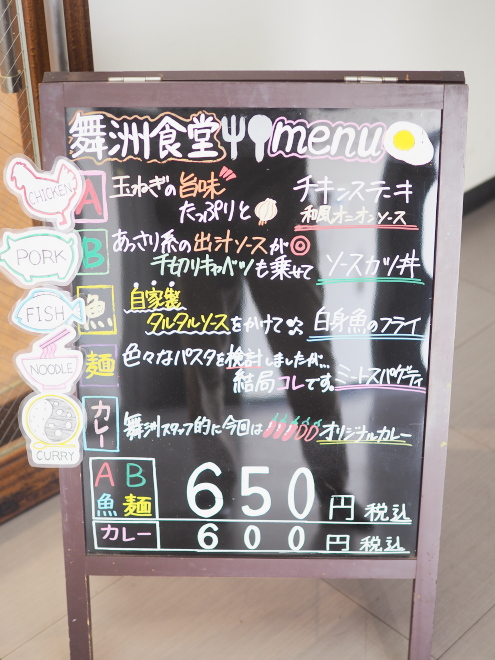 舞洲食堂 menu
CHICKEN
A
玉ねぎの旨味
たっぷりと
チキンステーキ
和風オニオンソース
PORK
B
あっさり系の出汁ソースが
千切りキャベツも乗せて
ソースカツ丼
FISH
魚
自家製
タルタルソースをかけて
白身魚のフライ
NOODLE
麺
色々なパスタを検討しましたが...
結局コレです。
ミートスパゲティ
CURRY
カレー
舞洲スタッフ的に今回は
オリジナルカレー
A B
魚 麺
650円 税込
カレー
600円 税込